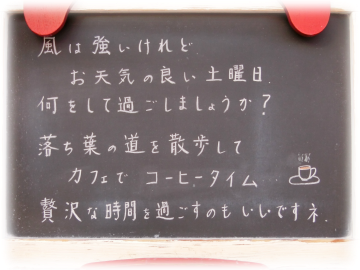 風は強いけれど
お天気の良い土曜日.
何をして過ごしましょうか?
落ち葉の道を散歩して
カフェで コーヒータイム
贅沢な時間を過ごすのもいいですネ.